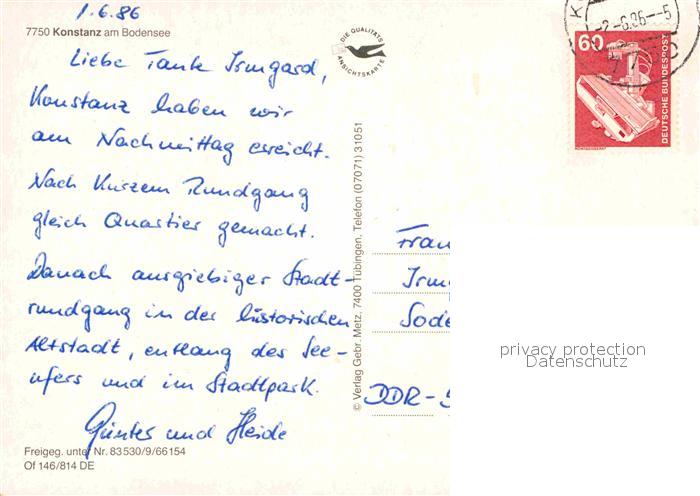 1.6.86
7750 Konstanz am Bodensee
Liebe Tante Irmgard,
Konstanz haben wir
am Nachmittag erreicht.
Nach kurzem Rundgang
gleich Quartier gemacht.
Danach ausgiebiger Stadt-
rundgang in der historischen
Altstadt, entlang des See-
ufers und im Stadtpark.
Günter und Heide
Freigeg. unter Nr. 83530/9/66154
Of 146/814 DE
DIE QUALITÄTS
ANSICHTSKARTE
© Verlag Gebr. Metz, 7400 Tübingen, Telefon (07071) 31051
60
DEUTSCHE BUNDESPOST
-2.-6.86--5
Frau
Irmg
Sode
DDR-5
privacy protection
Datenschutz